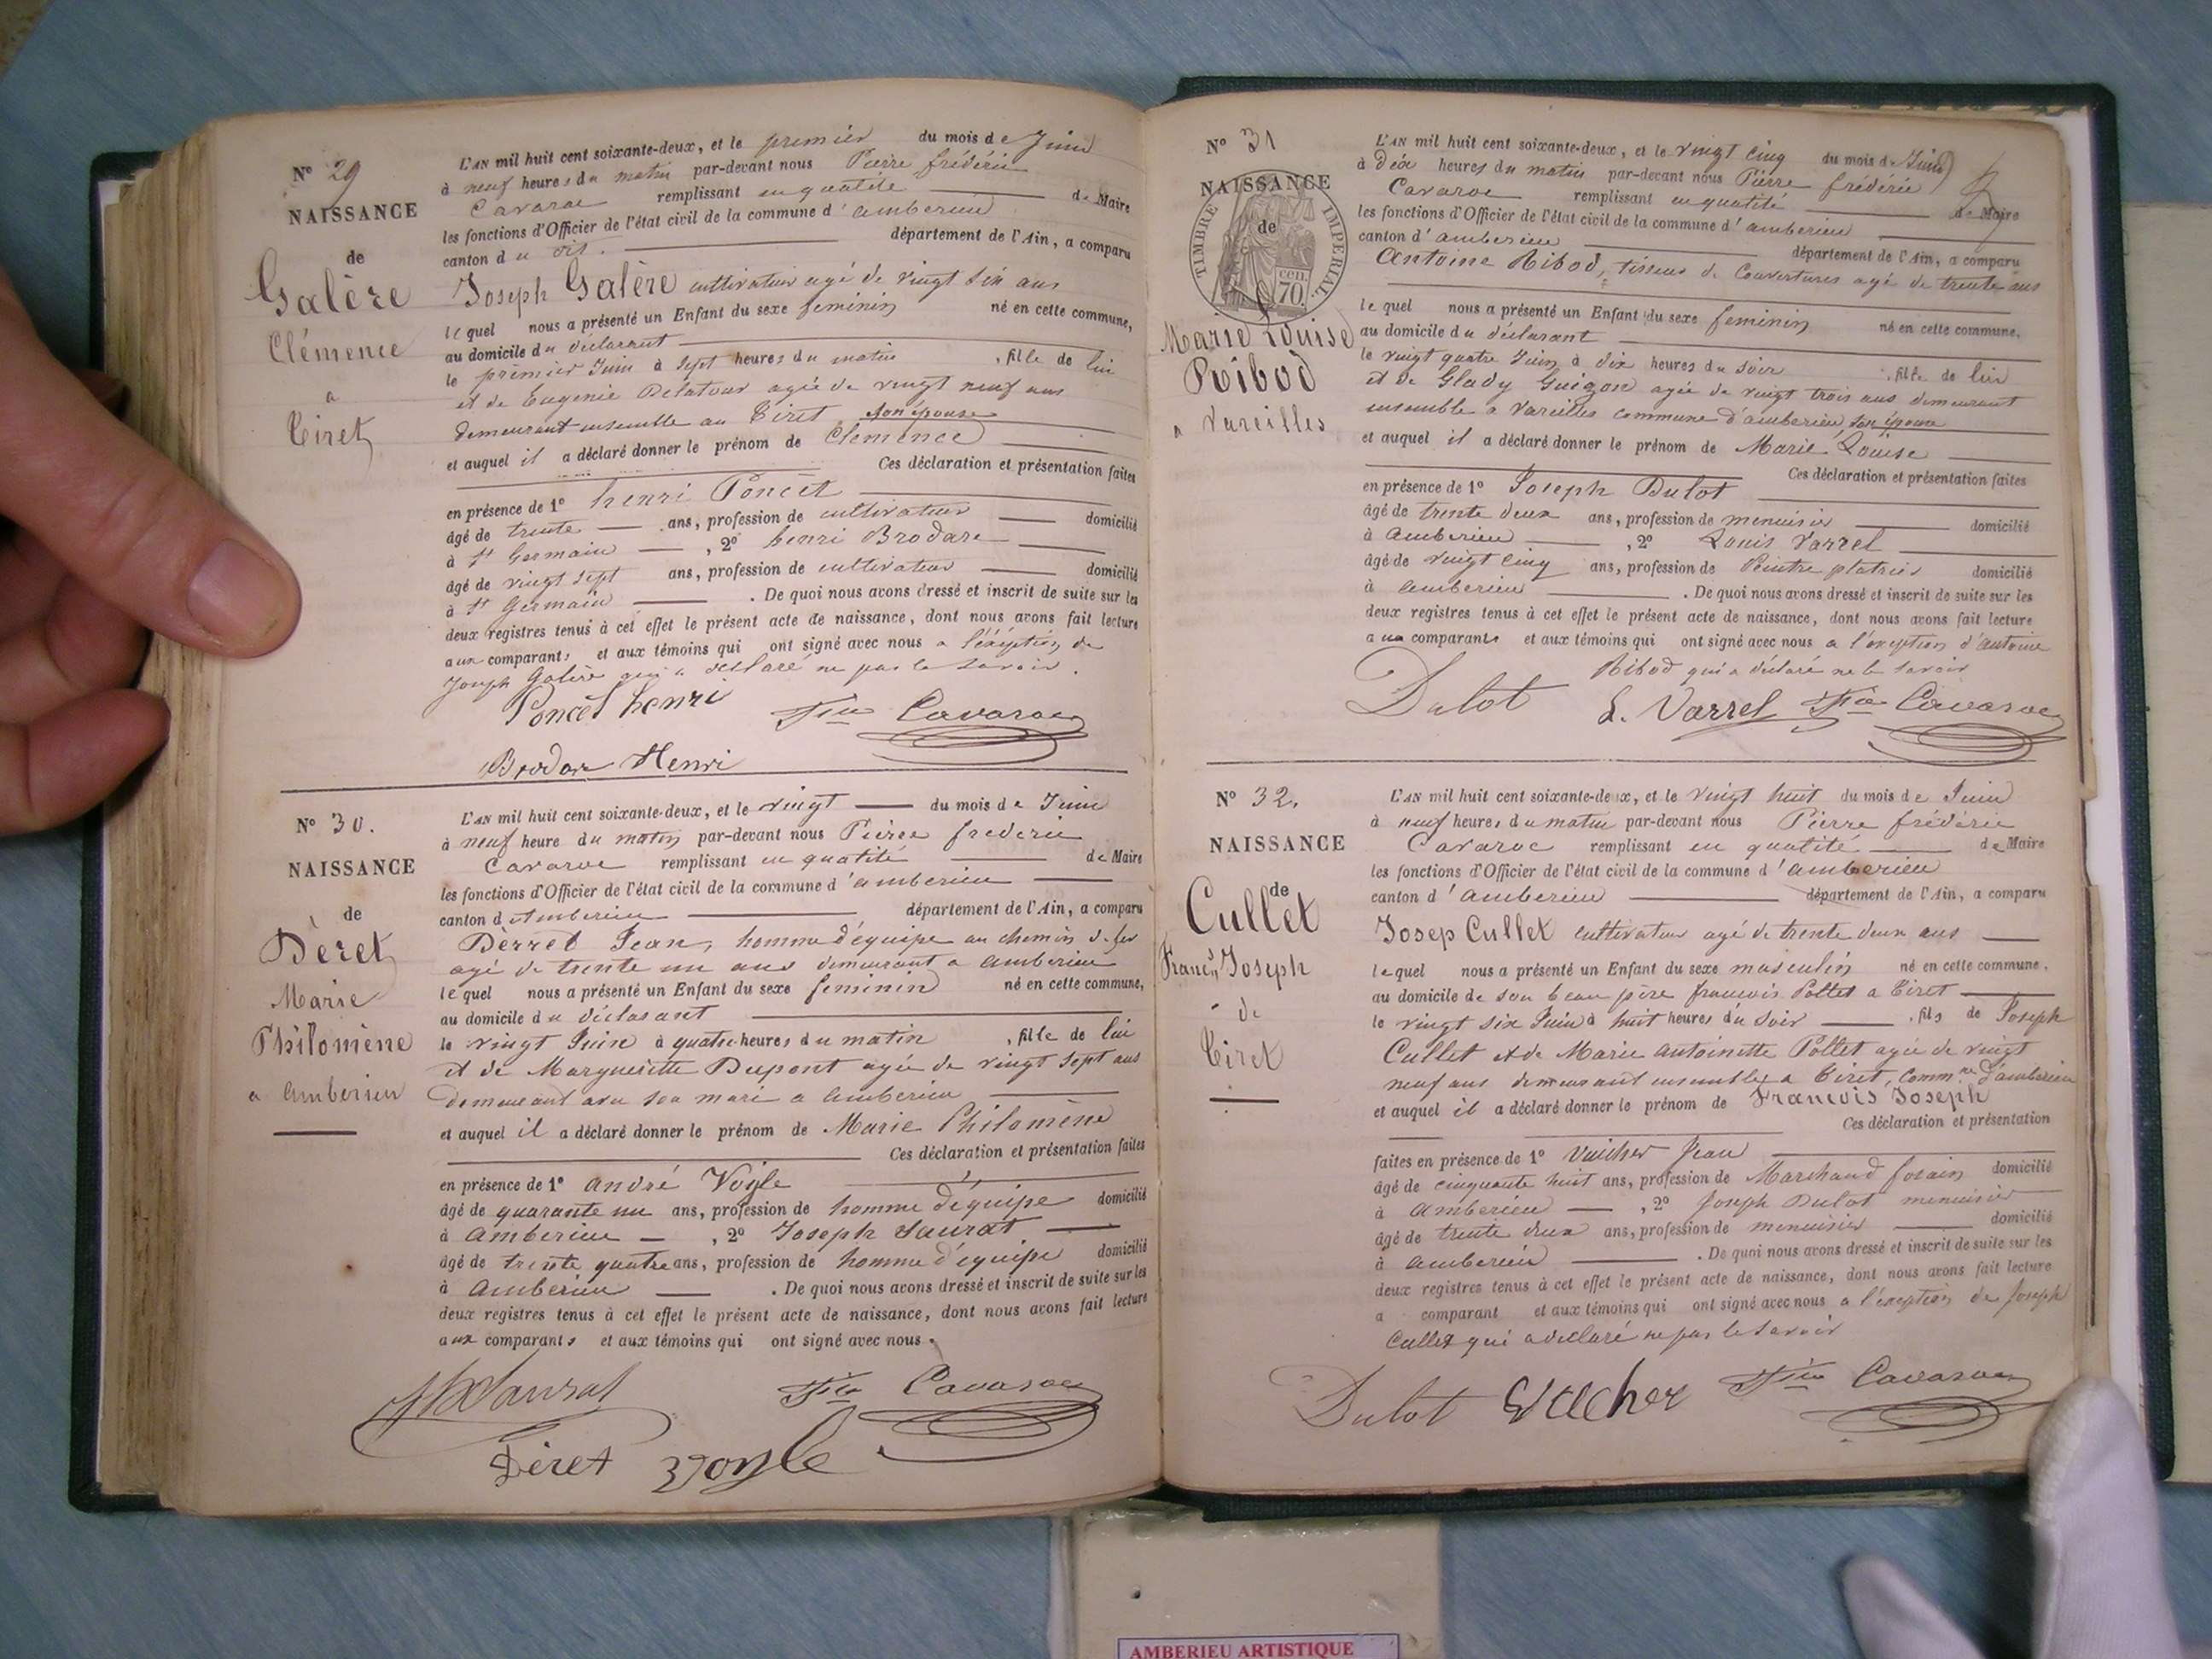 N° 29
NAISSANCE
de
Galère
Clémence
a
Tiret
L'AN mil huit cent soixante-deux, et le premier du mois de Juin
à neuf heures du matin par-devant nous Pierre frédéric
Cavaroc remplissant en qualité de Maire
les fonctions d'Officier de l'état civil de la commune d'amberieu
canton du dit. département de l'Ain, a comparu
Joseph Galère cultivateur agé de vingt six ans
lequel nous a présenté un Enfant du sexe feminin né en cette commune,
au domicile du déclarant
le premier Juin à sept heures du matin, fille de lui
et de Eugenie Delatour agée de vingt neuf ans
demeurant ensemble au Tiret son épouse
et auquel il a déclaré donner le prénom de Clemence
Ces déclaration et présentation faites
en présence de 1° henri Poncet
âgé de trente ans, profession de cultivateur domicilié
à st Germain, 2° henri Brodare
âgé de vingt sept ans, profession de cultivateur domicilié
à st Germain. De quoi nous avons dressé et inscrit de suite sur les
deux registres tenus à cet effet le présent acte de naissance, dont nous avons fait lecture
aux comparants et aux témoins qui ont signé avec nous a l'éxception de
Joseph Galère qui a déclaré ne pas le savoir.
Poncet henri Cavaroc
Brodar Henri
N° 30.
NAISSANCE
de
Dèret
Marie
Philomène
a Amberieu
L'AN mil huit cent soixante-deux, et le vingt du mois de Juin
à neuf heure du matin par-devant nous Pierre frederic
Cavaroc remplissant en qualité de Maire
les fonctions d'Officier de l'état civil de la commune d'amberieu
canton d'Amberieu département de l'Ain, a comparu
Dèrret Jean, homme d'équipe au chemin de fer
agé de trente un ans demeurant a amberieu
lequel nous a présenté un Enfant du sexe feminin né en cette commune,
au domicile du déclarant
le vingt Juin à quatre heures du matin, fille de lui
et de Marguerite Dupont agée de vingt sept ans
demeurant avec son mari a amberieu
et auquel il a déclaré donner le prénom de Marie Philomène
Ces déclaration et présentation faites
en présence de 1° andré Vogle
âgé de quarante un ans, profession de homme d'équipe domicilié
à amberieu, 2° Joseph Saurat
âgé de trente quatre ans, profession de homme d'équipe domicilié
à amberieu. De quoi nous avons dressé et inscrit de suite sur les
deux registres tenus à cet effet le présent acte de naissance, dont nous avons fait lecture
aux comparants et aux témoins qui ont signé avec nous.
Saurat Cavaroc
Dèret Vogle
N° 31
NAISSANCE
de
TIMBRE IMPERIAL
70 cen.
Marie Louise
Ribod
a Vareilles
L'AN mil huit cent soixante-deux, et le vingt cinq du mois de Juin
à dix heures du matin par-devant nous Pierre frédéric
Cavaroc remplissant en qualité de Maire
les fonctions d'Officier de l'état civil de la commune d'amberieu
canton d'amberieu département de l'Ain, a comparu
Antoine Ribod, tisseur de couvertures agé de trente ans
lequel nous a présenté un Enfant du sexe feminin né en cette commune,
au domicile du déclarant
le vingt quatre Juin à dix heures du soir, fille de lui
et de Glady Guigon agée de vingt trois ans demeurant
ensemble a Vareilles commune d'amberieu, son épouse
et auquel il a déclaré donner le prénom de Marie Louise
Ces déclaration et présentation faites
en présence de 1° Joseph Dulot
âgé de trente deux ans, profession de menuisier domicilié
à amberieu, 2° Louis Varrel
âgé de vingt cinq ans, profession de Peintre platrier domicilié
à amberieu. De quoi nous avons dressé et inscrit de suite sur les
deux registres tenus à cet effet le présent acte de naissance, dont nous avons fait lecture
aux comparants et aux témoins qui ont signé avec nous a l'exception d'antoine
Ribod qui a déclaré ne le savoir
Dulot L. Varrel Cavaroc
N° 32.
NAISSANCE
de
Cullet
Franç, Joseph
de
Tiret
L'AN mil huit cent soixante-deux, et le vingt huit du mois de Juin
à neuf heures du matin par-devant nous Pierre frédéric
Cavaroc remplissant en qualité de Maire
les fonctions d'Officier de l'état civil de la commune d'amberieu
canton d'amberieu département de l'Ain, a comparu
Josep Cullet cultivateur agé de trente deux ans
lequel nous a présenté un Enfant du sexe masculin né en cette commune,
au domicile de son beau père francois Pollet a Tiret
le vingt six Juin à huit heures du soir, fils de Joseph
Cullet et de Marie antoinette Pollet agée de vingt
neuf ans demeurant ensemble a Tiret, comm.ne d'amberieu
et auquel il a déclaré donner le prénom de Francois Joseph
Ces déclaration et présentation
faites en présence de 1° Vuilcher Jean
âgé de cinquante huit ans, profession de Marchand forain domicilié
à amberieu, 2° Joseph Dulot menuisier
âgé de trente deux ans, profession de menuisier domicilié
à amberieu. De quoi nous avons dressé et inscrit de suite sur les
deux registres tenus à cet effet le présent acte de naissance, dont nous avons fait lecture
a comparant et aux témoins qui ont signé avec nous a l'exception de Joseph
Cullet qui a déclaré ne pas le savoir
Dulot Cavaroc
AMBERIEU ARTISTIQUE